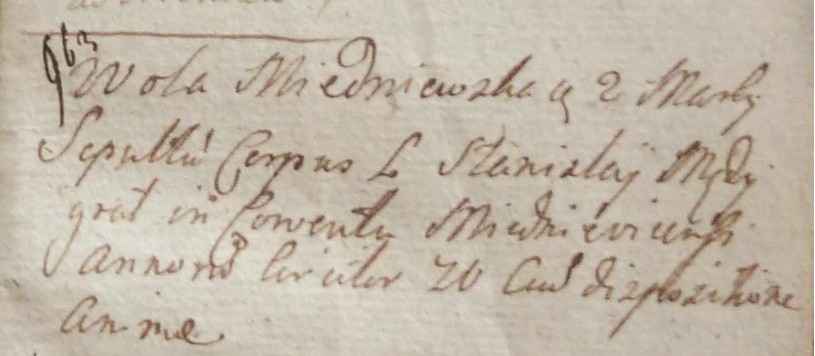 963
Wola Miedniewska 2 Marty
Sepultũ Corpus L Stanislaij
in Conventu Miednievicensi
annorũ Circiter 20 Cuũ dispositione
animæ